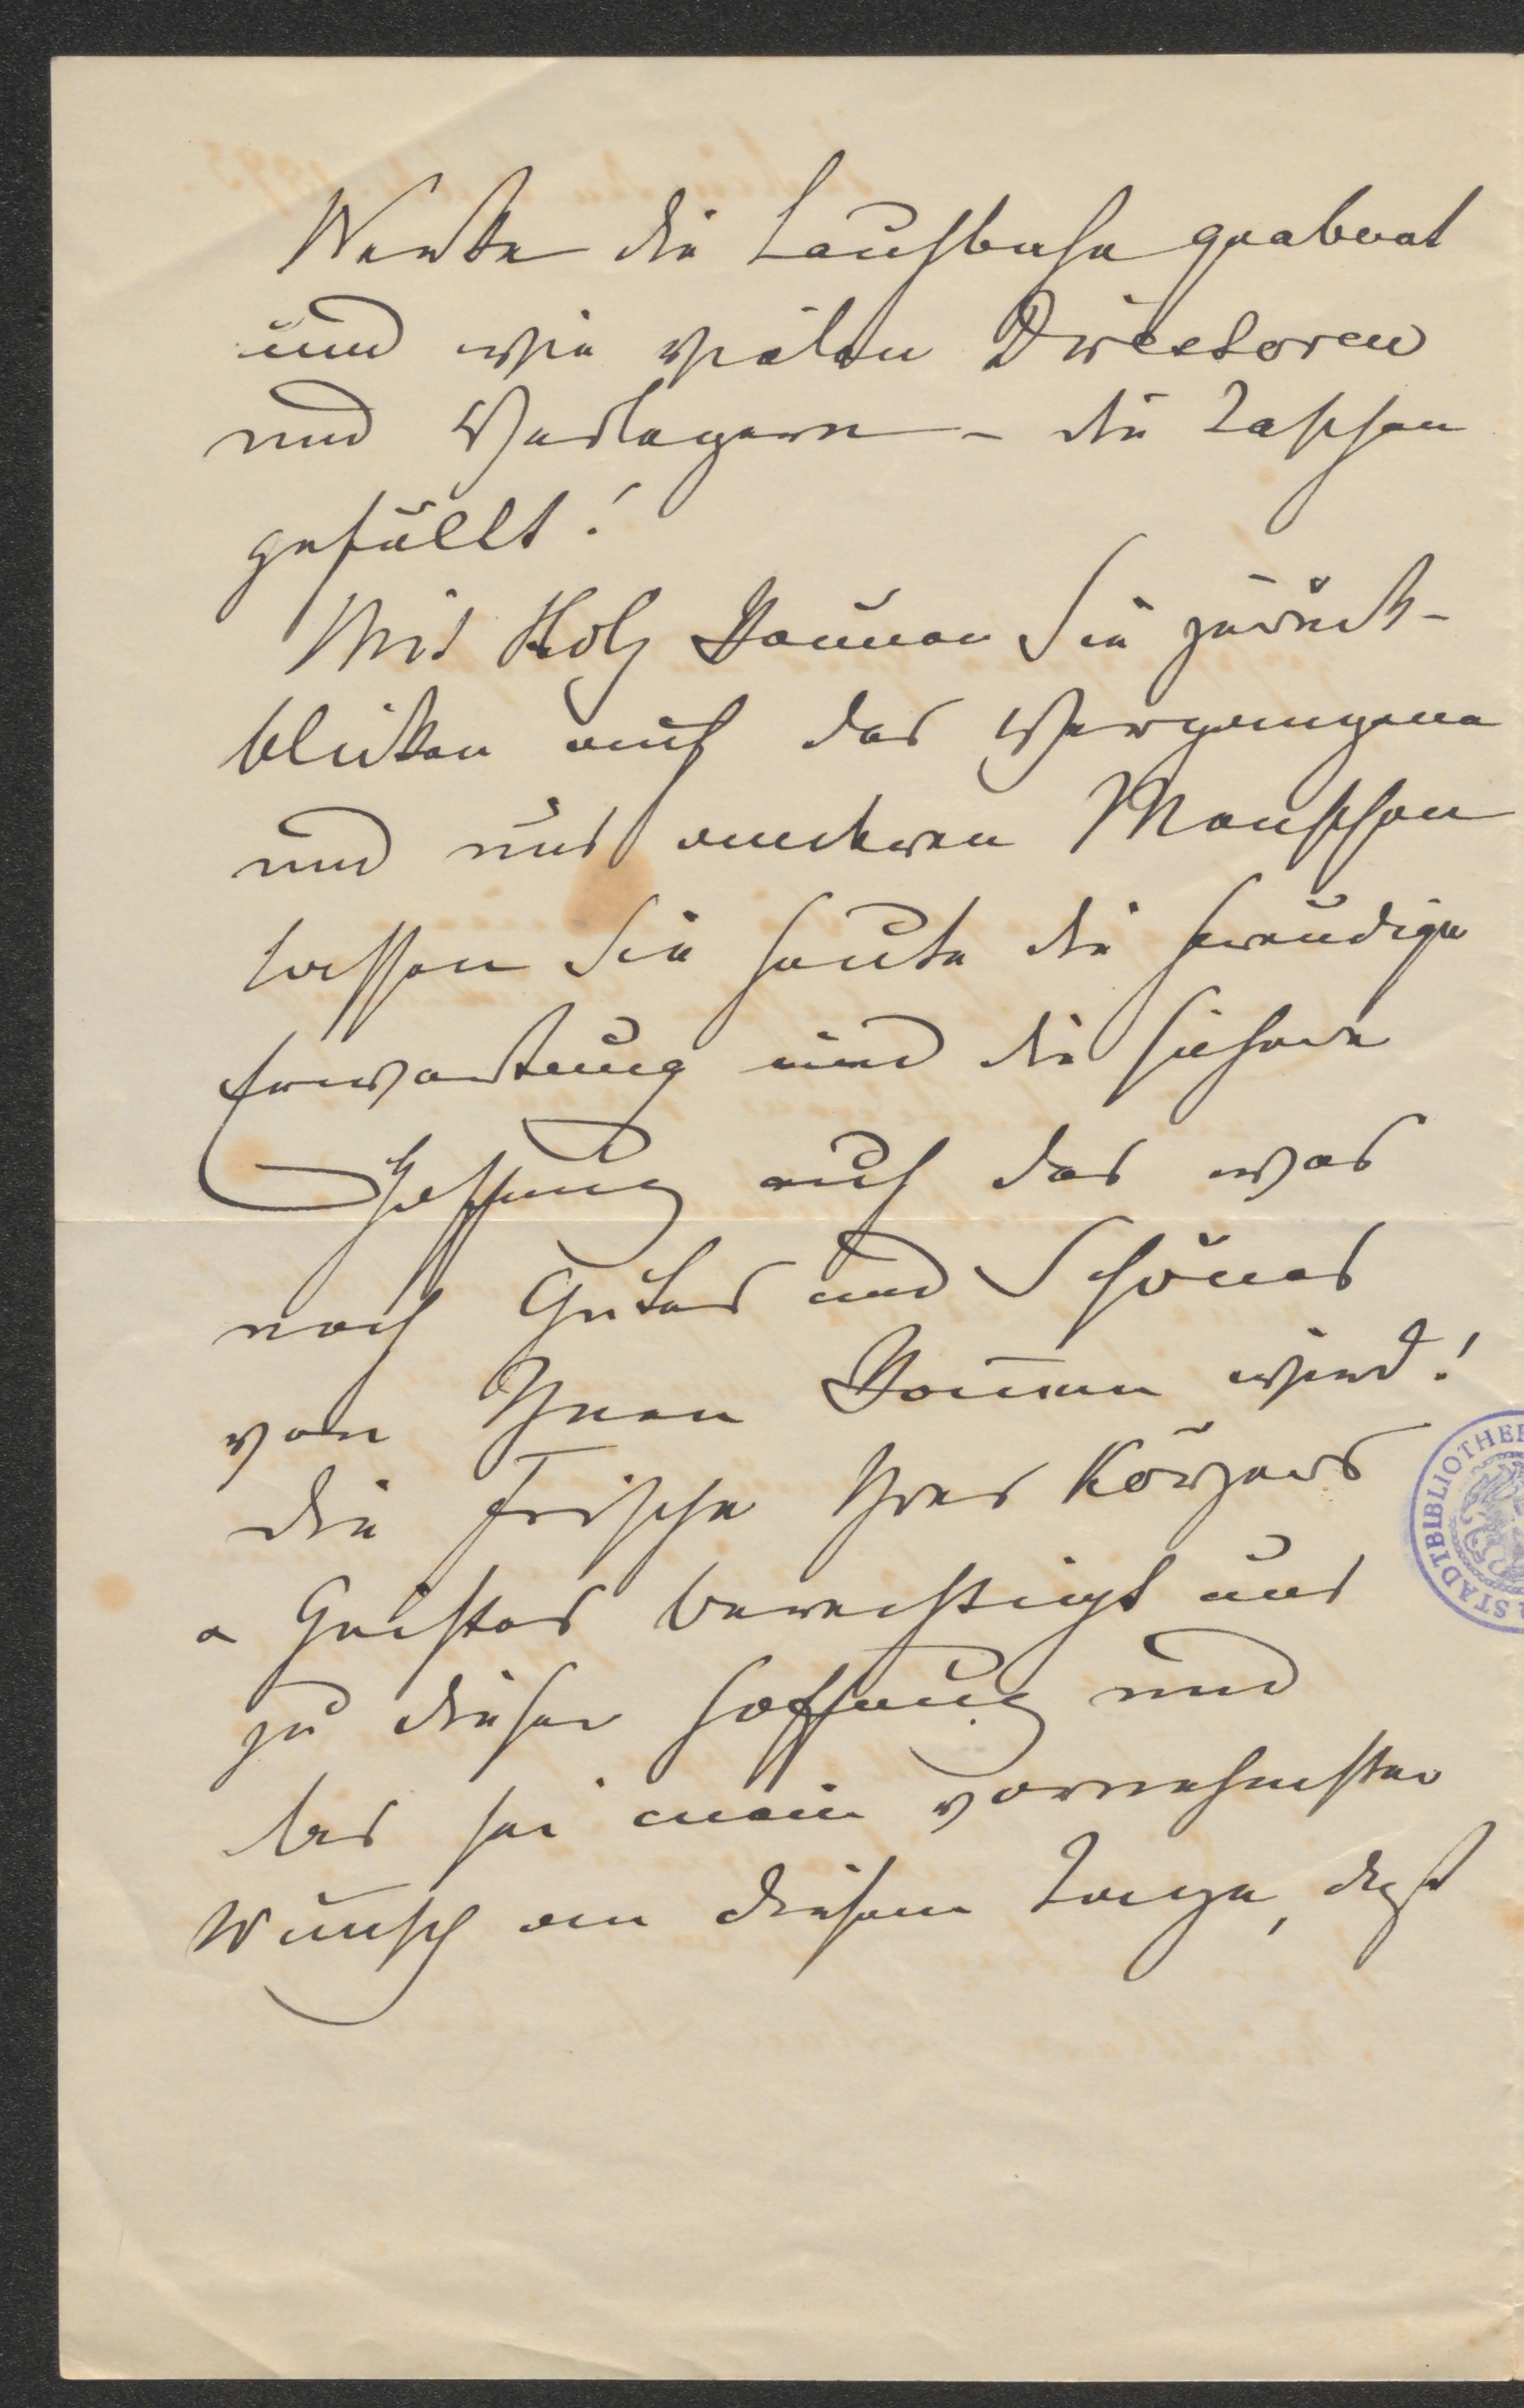 Werke die Laufbahn geebnet
und wie vielen Directoren
und Verlegern – die Taschen
gefüllt!
Mit Stolz können Sie zurück-
blicken auf das Vergangene
und uns anderen Menschen
lassen Sie heute die freudige
Erwartung und die sichere
Hoffnung auf das was
noch Gutes und Schönes
von Ihnen kom̅en wird!
Die Frische Ihres Körpers
u Geistes berechtigt uns
zu dieser Hoffnung und
das sei mein vornehmster
Wunsch an diesem Tage, daß
STADTBIBLIOTHEK